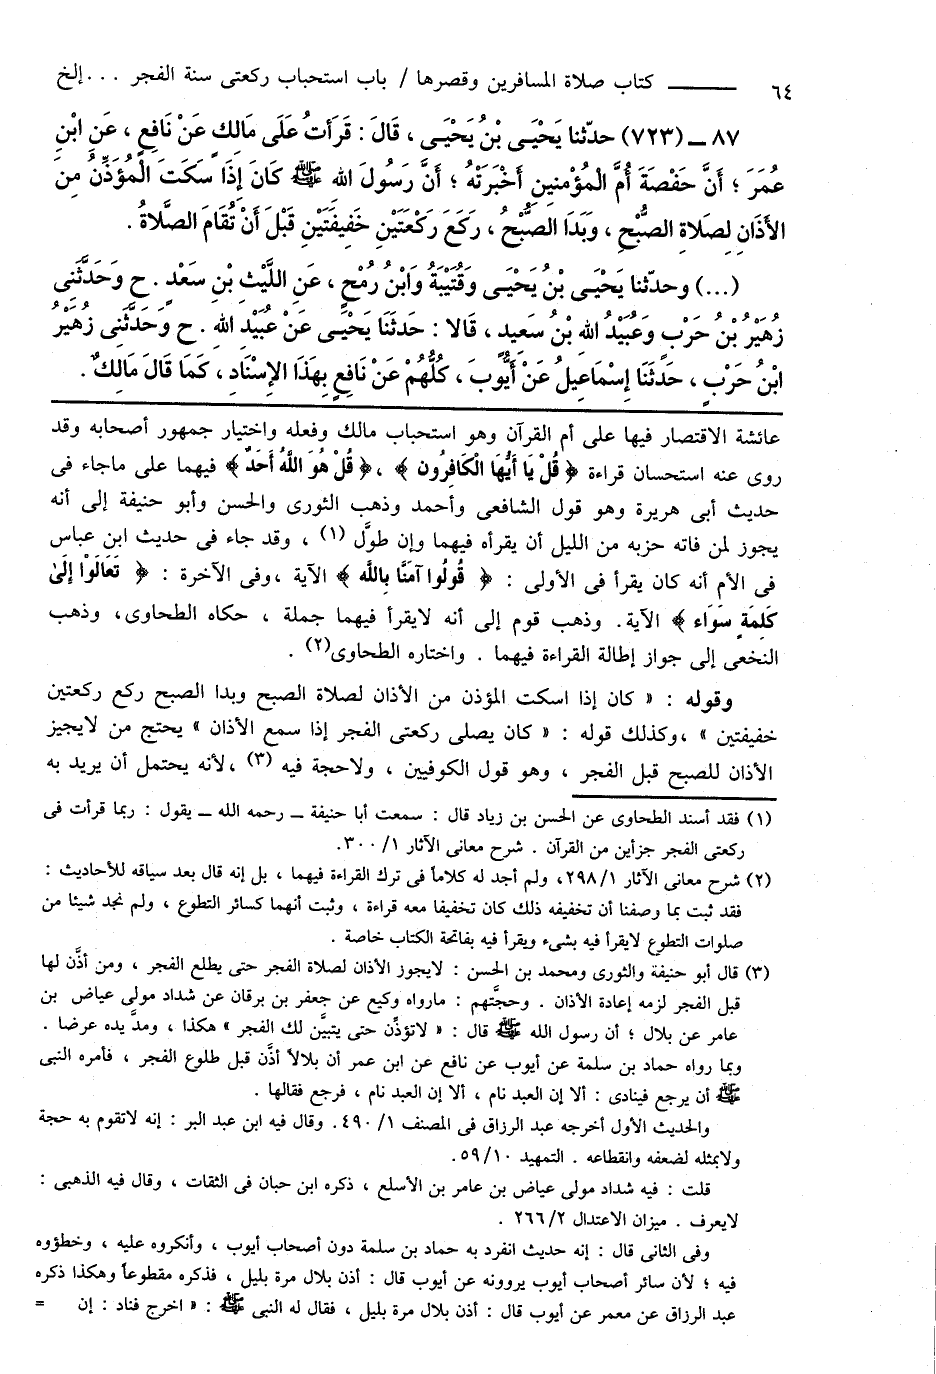 ٦٤ ــــــــ كتاب صلاة المسافرين وقصرها / باب استحباب ركعتى سنة الفجر ... إلخ
٨٧ ــ (٧٢٣) حدّثنا يَحْيَى بْنُ يَحْيَى ، قَالَ : قَرَأتُ عَلَى مَالِكٍ عَنْ نَافِعٍ ، عَنِ ابْنِ
عُمَرَ ؛ أَنَّ حَفْصَةَ أُمَّ الْمُؤْمنِينِ أَخْبَرَتْهُ ؛ أَنَّ رَسُولَ الله ﷺ كَانَ إِذَا سَكَتَ الْمُؤَذِّنُ مِنَ
الأَذَانِ لِصَلاةِ الصُّبْحِ ، وَبَدَا الصُّبْحُ ، رَكَعَ رَكْعَتَيْنِ خَفِيفَتَيْنِ قَبْلَ أَنْ تُقَامَ الصَّلاةُ .
(...) وحدّثنا يَحْيَى بْنُ يَحْيَى وَقُتَيْبَةُ وَابْنُ رُمْحٍ ، عَنِ اللَّيْثِ بْنِ سَعْدٍ . ح وَحَدَّثَنِى
زُهَيْرُ بْنُ حَرْبٍ وَعُبَيْدُ اللهِ بْنُ سَعِيدٍ ، قَالا : حَدَّثَنَا يَحْيَى عَنْ عُبَيْدِ اللهِ . ح وَحَدَّثَنِى زُهَيْرُ
ابْنُ حَرْبٍ ، حَدَّثَنَا إِسْمَاعِيلُ عَنْ أَيُّوبَ ، كُلُّهُمْ عَنْ نَافِعٍ بِهَذَا الإِسْنَادِ ، كَمَا قَالَ مَالِكٌ .
عائشة الاقتصار فيها على أم القرآن وهو استحباب مالك وفعله واختيار جمهور أصحابه وقد
روى عنه استحسان قراءة ﴿ قُلْ يَا أَيُّهَا الْكَافِرُون ﴾ ، ﴿ قُلْ هُوَ اللَّهُ أَحَدٌ ﴾ فيهما على ماجاء فى
حديث أبى هريرة وهو قول الشافعى وأحمد وذهب الثورى والحسن وأبو حنيفة إلى أنه
يجوز لمن فاته حزبه من الليل أن يقرأه فيهما وإن طوَّل (١) ، وقد جاء فى حديث ابن عباس
فى الأم أنه كان يقرأ فى الأولى : ﴿ قُولُوا آمَنَّا بِاللَّه ﴾ الآية ،وفى الآخرة : ﴿ تَعَالَوْا إِلَىٰ
كَلِمَةٍ سَوَاء ﴾ الآية. وذهب قوم إلى أنه لايقرأ فيهما جملة ، حكاه الطحاوى، وذهب
النخعى إلى جواز إطالة القراءة فيهما . واختاره الطحاوى(٢) .
وقوله : « كان إذا اسكت المؤذن من الأذان لصلاة الصبح وبدا الصبح ركع ركعتين
خفيفتين » ،وكذلك قوله : « كان يصلى ركعتى الفجر إذا سمع الأذان » يحتج من لايجيز
الأذان للصبح قبل الفجر ، وهو قول الكوفيين ، ولاحجة فيه (٣) ،لأنه يحتمل أن يريد به
(١) فقد أسند الطحاوى عن الحسن بن زياد قال : سمعت أبا حنيفة ــ رحمه الله ــ يقول : ربما قرأت فى
ركعتى الفجر جزأين من القرآن . شرح معانى الآثار ١/ ٣٠٠.
(٢) شرح معانى الآثار ١/ ٢٩٨، ولم أجد له كلاماً فى ترك القراءة فيهما ، بل إنه قال بعد سياقه للأحاديث :
فقد ثبت بما وصفنا أن تخفيفه ذلك كان تخفيفا معه قراءة ، وثبت أنهما كسائر التطوع ، ولم نجد شيئا من
صلوات التطوع لايقرأ فيه بشىء ويقرأ فيه بفاتحة الكتاب خاصة .
(٣) قال أبو حنيفة والثورى ومحمد بن الحسن : لايجوز الأذان لصلاة الفجر حتى يطلع الفجر ، ومن أذَّن لها
قبل الفجر لزمه إعادة الأذان . وحجَّتهم : مارواه وكيع عن جعفر بن برقان عن شداد مولى عياض بن
عامر عن بلال ؛ أن رسول الله ﷺ قال : « لاتؤذِّن حتى يتبيَّن لك الفجر » هكذا ، ومدَّ يده عرضا .
وبما رواه حماد بن سلمة عن أيوب عن نافع عن ابن عمر أن بلالاً أذَّن قبل طلوع الفجر ، فأمره النبى
ﷺ أن يرجع فينادى : ألا إن العبد نام ، ألا إن العبد نام ، فرجع فقالها .
والحديث الأول أخرجه عبد الرزاق فى المصنف ١/ ٤٩٠. وقال فيه ابن عبد البر : إنه لاتقوم به حجة
ولابمثله لضعفه وانقطاعه . التمهيد ١٠/ ٥٩.
قلت : فيه شداد مولى عياض بن عامر بن الأسلع ، ذكره ابن حبان فى الثقات ، وقال فيه الذهبى :
لايعرف . ميزان الاعتدال ٢/ ٢٦٦ .
وفى الثانى قال : إنه حديث انفرد به حماد بن سلمة دون أصحاب أيوب ، وأنكروه عليه ، وخطؤوه
فيه ؛ لأن سائر أصحاب أيوب يروونه عن أيوب قال : أذن بلال مرة بليل ، فذكره مقطوعاً وهكذا ذكره
عبد الرزاق عن معمر عن أيوب قال : أذن بلال مرة بليل ، فقال له النبى ﷺ : « اخرج فناد : إن =